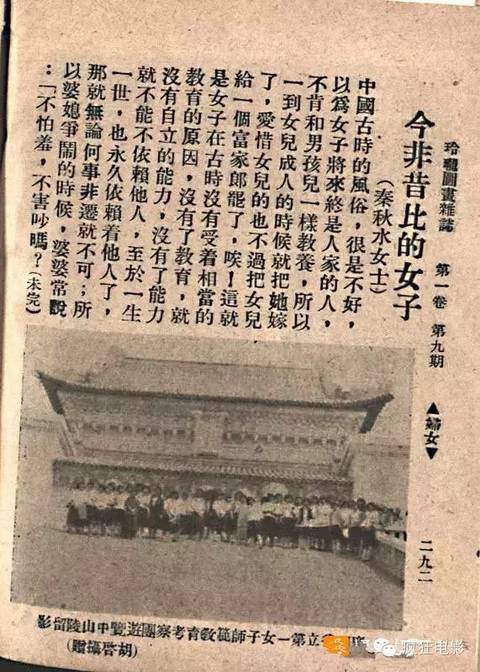 玲瓏圖畫雜誌 第一卷 第九期 ▲婦女▼ 二九二
今非昔比的女子
(秦秋水女士)
中國古時的風俗，很是不好，
以爲女子將來終是人家的人，
不肯和男孩兒一樣教養，所以
一到女兒成人的時候就把她嫁
了，愛惜女兒的也不過把女兒
給一個富家郎罷了，唉！這就
是女子在古時沒有受着相當的
教育的原因，沒有了教育，就
沒有自立的能力，沒有了能力
就不能不依賴他人，至於一生
一世，也永久依賴着他人了，
那就無論何事非遷就不可；所
以婆媳爭鬧的時候，婆婆常說
：「不怕羞，不害吵嗎？(未完)
立第一女子師範教育考察團遊覽中山陵留影
(胡啓攝贈)
疯狂电影